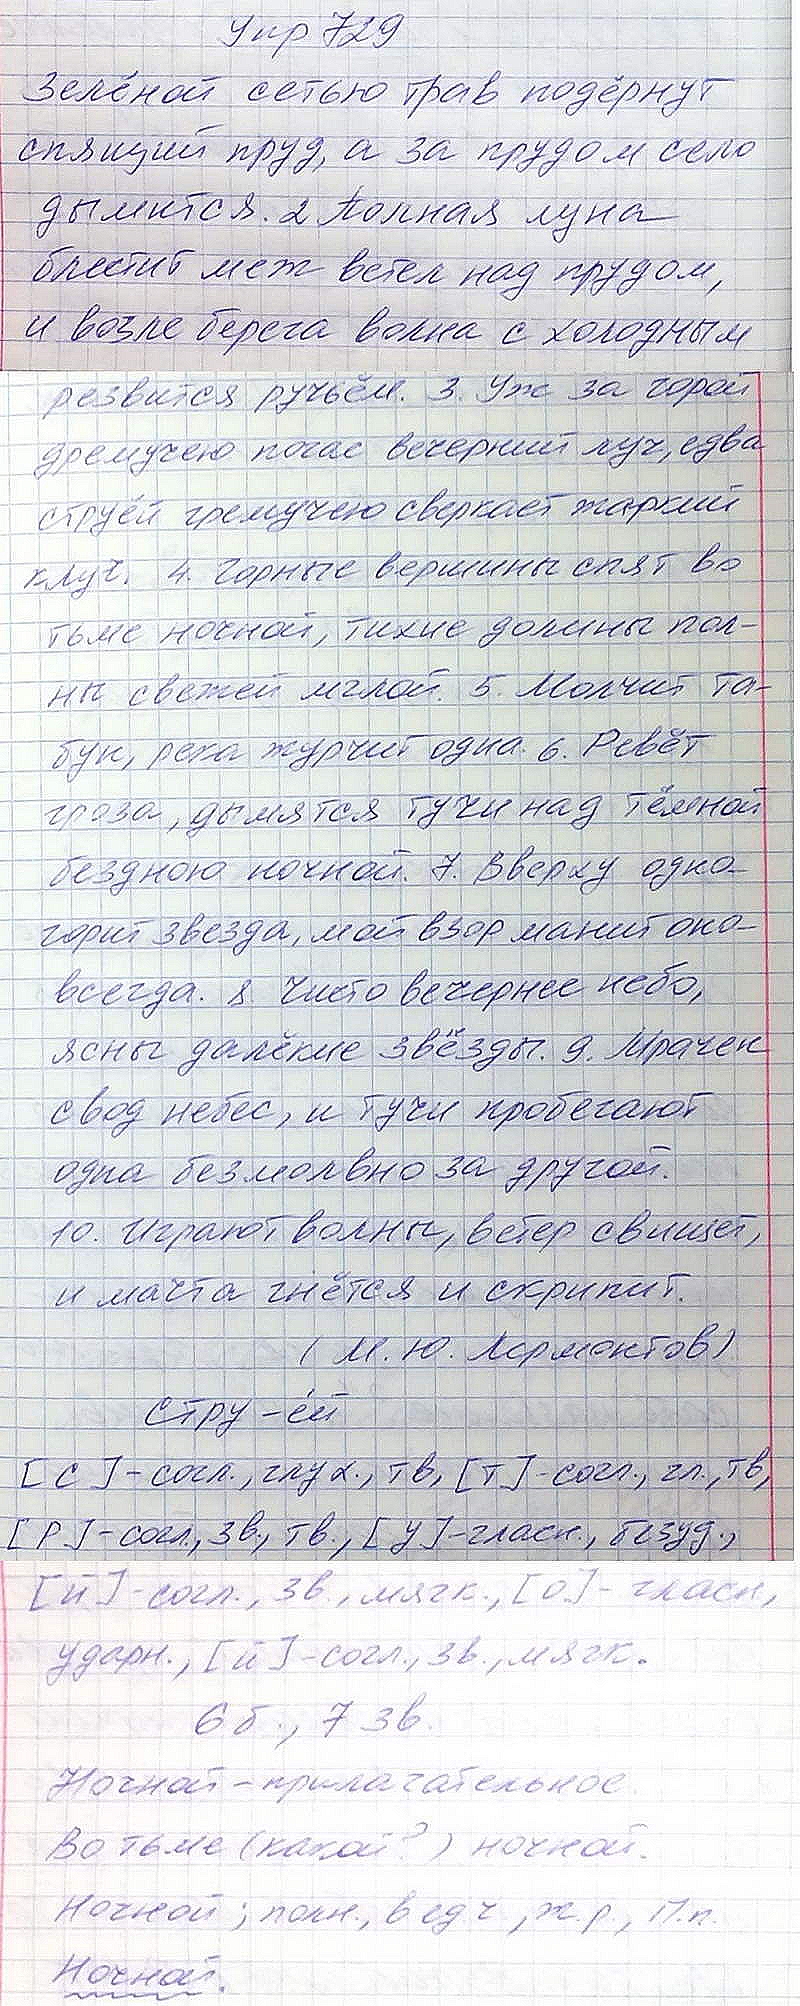 Упр 729
Зелёной сетью трав подёрнут
спящий пруд, а за прудом село
дымится. 2 Полная луна
блестит меж ветел над прудом,
и возле берега волна с холодным
резвится ручьём. 3. Уж за горой
дремучею погас вечерний луч, едва
струёй гремучею сверкает жаркий
клуч. 4. Горные вершины спят во
тьме ночной, тихие долины пол-
ны свежей мглой. 5. Молчит та-
бун, река журчит одна. 6. Ревёт
гроза, дымятся тучи над тёмной
бездною ночной. 7. Вверху одна
горит звезда, мой взор манит она
всегда. 8. Чисто вечернее небо,
ясны далёкие звёзды. 9. Мрачен
свод небес, и тучи пробегают
одна безмолвно за другой.
10. Играют волны, ветер свищет,
и мачта гнётся и скрипит.
(М. Ю. Лермонтов)
Стру-ёй
[с]-согл., глух., тв, [т]-согл., гл., тв,
[р]-согл., зв., тв., [у]-гласн., безуд.,
[й]-согл., зв., мягк., [о]-гласн,
ударн., [й]-согл., зв., мягк.
6 б., 7 зв.
Ночной-прилагательное.
Во тьме (какой?) ночной.
Ночной; полн., в ед ч, ж. р., П. п.
Ночной.